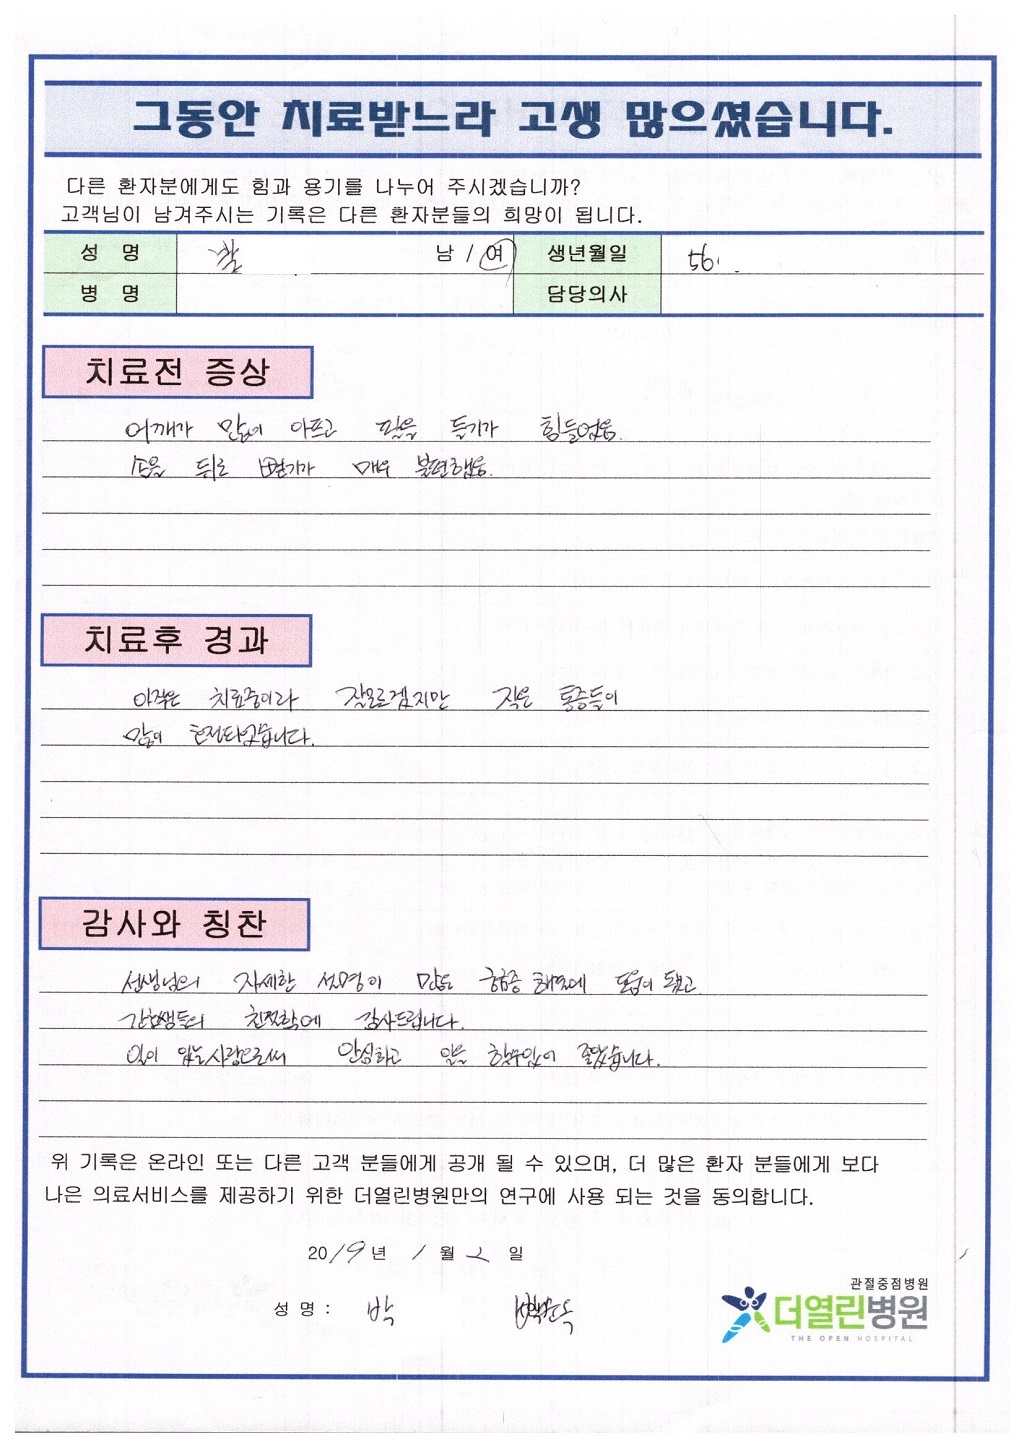 그동안 치료받느라 고생 많으셨습니다.
다른 환자분에게도 힘과 용기를 나누어 주시겠습니까?
고객님이 남겨주시는 기록은 다른 환자분들의 희망이 됩니다.
성 명 남 / 여 생년월일 56.
병 명 담당의사
치료전 증상
어깨가 많이 아프고 팔을 들기가 힘들었음.
손을 뒤로 뻗기가 매우 불편했음.
치료후 경과
아직은 치료중이라 잘모르겠지만 작은 통증들이
많이 호전되었습니다.
감사와 칭찬
선생님의 자세한 설명이 많은 통증 해소에 도움이 됐고
간호쌤들의 친절함에 감사드립니다.
일이 있는사람으로써 안심하고 일을 할수있어 좋았습니다.
위 기록은 온라인 또는 다른 고객 분들에게 공개 될 수 있으며, 더 많은 환자 분들에게 보다
나은 의료서비스를 제공하기 위한 더열린병원만의 연구에 사용 되는 것을 동의합니다.
2019년 1월 2일
성 명 : 박
관절중점병원
더열린병원
THE OPEN HOSPITAL